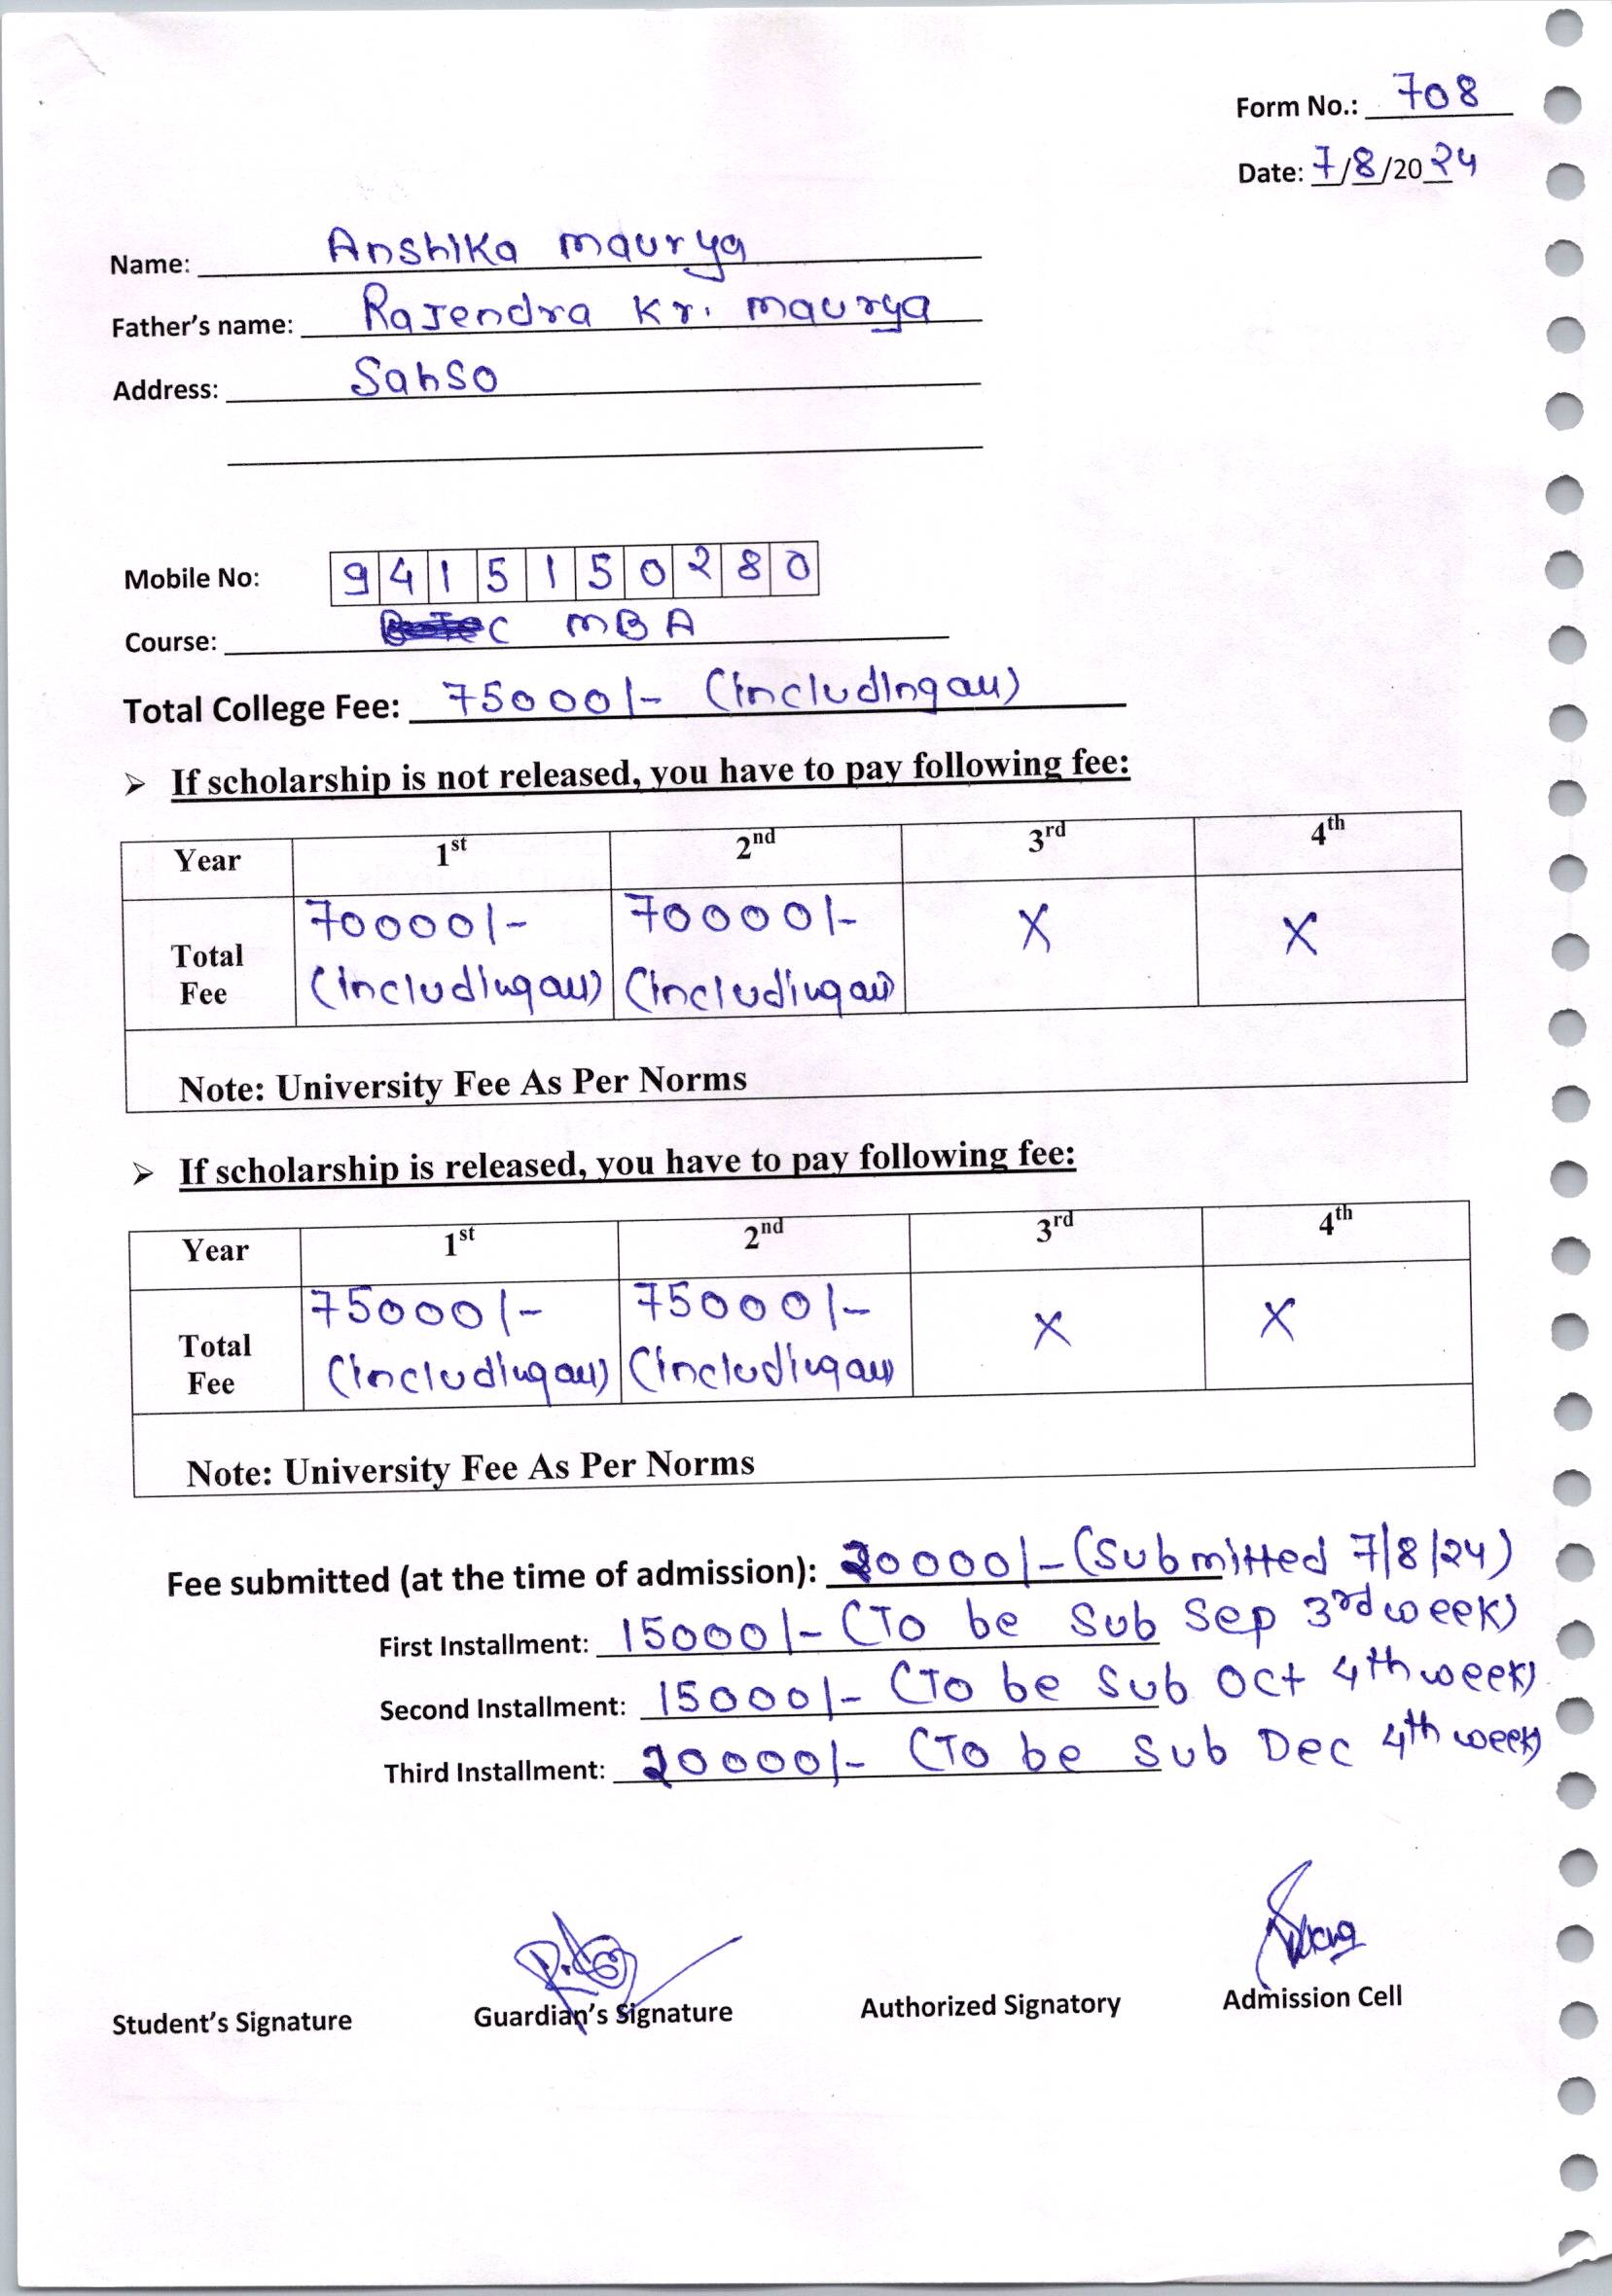 Form No.: 708
Date: 7/8/2024
Name: Anshika Maurya
Father's name: Rajendra Kr. Maurya
Address: Sahso
Mobile No: 9415150280
Course: MBA
Total College Fee: 75000/- (including all)
➢ If scholarship is not released, you have to pay following fee:
Year 1st 2nd 3rd 4th
Total Fee 70000/- (including all) 70000/- (including all) X X
Note: University Fee As Per Norms
➢ If scholarship is released, you have to pay following fee:
Year 1st 2nd 3rd 4th
Total Fee 75000/- (including all) 75000/- (including all) X X
Note: University Fee As Per Norms
Fee submitted (at the time of admission): 20000/- (Submitted 7/8/24)
First Installment: 15000/- (To be Sub Sep 3rd week)
Second Installment: 15000/- (To be Sub Oct 4th week)
Third Installment: 20000/- (To be Sub Dec 4th week)
Student's Signature Guardian's Signature Authorized Signatory Admission Cell